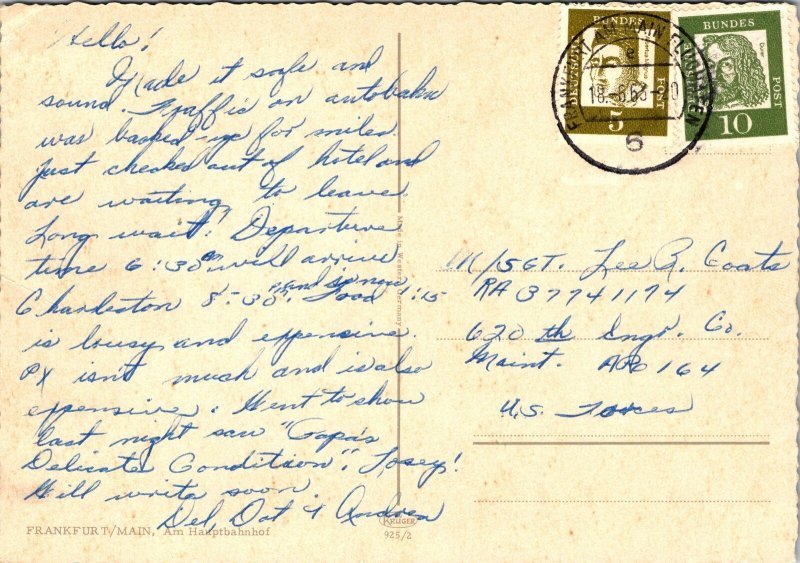 Hello!
Made it safe and
sound. Traffic on autobahn
was backed-up for miles.
Just checked out of hotel and
are waiting to leave.
Long wait! Departure
time 6:30 will arrive
Charleston 8:30. Food
and is now 1:15
is lousy and expensive.
PX isn't much and is also
expensive. Went to show
last night saw "Papa's
Delicate Condition". Lousy!
Will write soon.
Del, Dot & Andrea
FRANKFURT/MAIN, Am Hauptbahnhof
KRÜGER
925/2
Made in Western Germany
BUNDES
POST
5
BUNDES
POST
10
FRANKFURT AM MAIN FLUGHAFEN
18.-6.63
6
M/SGT. Lee R. Coats
RA 37741174
620th Engr. Co.
Maint. APO 164
U.S. Forces